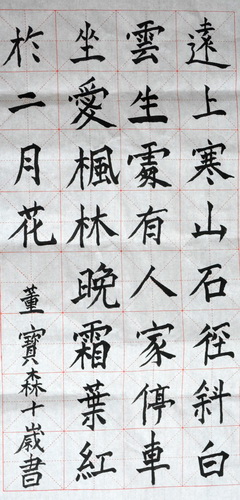 遠上寒山石徑斜白
雲生處有人家停車
坐愛楓林晚霜葉紅
扵二月花
董寶森十歲書